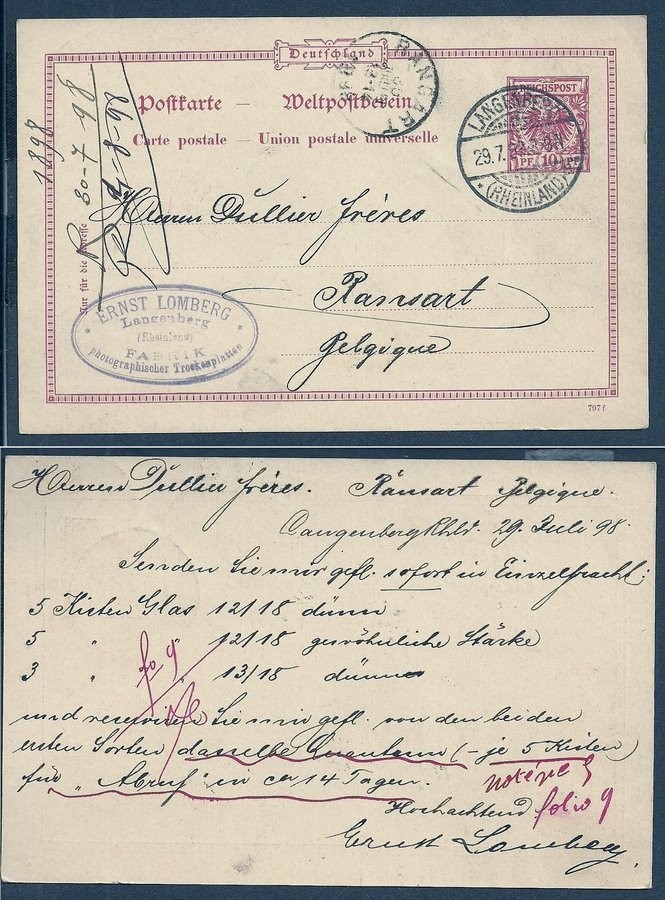 Deutschland
RANSART
Postkarte – Weltpostverein
Carte postale – Union postale universelle
REICHSPOST
10 PF 10 PF
LANGENBERG
29.7.
* (RHEINLAND) *
1898
R 30-7-98
R 1-8-98
Nur für die Adresse
Herren Dullier frères
Ransart
Belgique
* ERNST LOMBERG *
Langenberg
(Rheinland)
FABRIK
photographischer Trockenplatten
797 f
Herren Dullier frères. Ransart Belgique.
Langenberg Rhld. 29. Juli 98.
Senden Sie mir gefl. sofort in Einzelfracht:
5 Kisten Glas 12/18 dünn
5 " " 12/18 gewöhnliche Stärke
3 " " 13/18 dünn
fo 9
und reservieren Sie mir gefl. von den beiden
ersten Sorten dasselbe Quantum (– je 5 Kisten)
für "Abruf" in ca 14 Tagen.
folio 9
Hochachtend
Ernst Lomberg